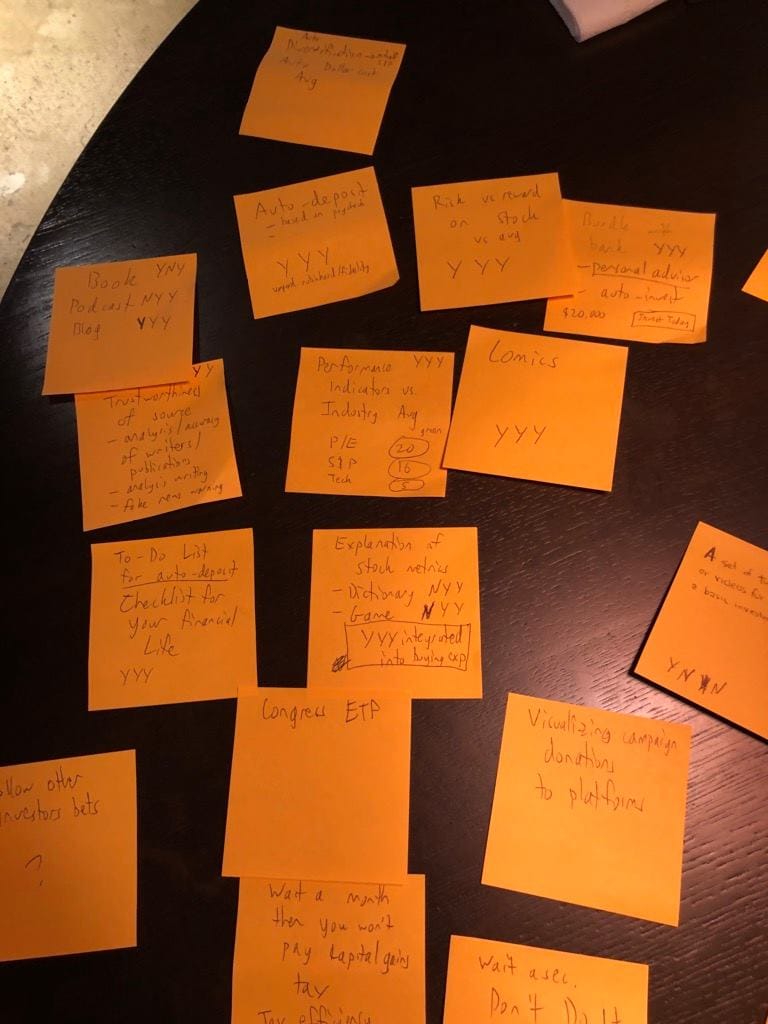 Auto
Diversification
Auto Dollar cost
Avg
Auto-deposit
- based on paycheck
YYY
Risk vs reward
on stock
vs avg
Y YY
Bundle
bank YYY
- personal advisor
- auto-invest
$20,000
Invest Today
Book YNY
Podcast NYY
Blog YYY
YY
Trustworthiness
of source
- analysis/accuracy
of writers/
publications
- analysis writing
- fake news warning
Performance YYY
Indicators vs.
Industry Avg
green
P/E 20
S&P 16
Tech 5
Comics
YYY
To-Do List
for auto-deposit
Checklist for
your financial
Life
YYY
Explanation of
stock metrics
- Dictionary NYY
- Game NYY
YYY integrated
into buying exp
A set of
or videos for
a basic
YN N
Congress ETP
Visualizing campaign
donations
to platforms
other
investors bets
?
Wait a month
then you won't
pay capital gains
tax
Tax efficiency
Wait a sec.
Don't